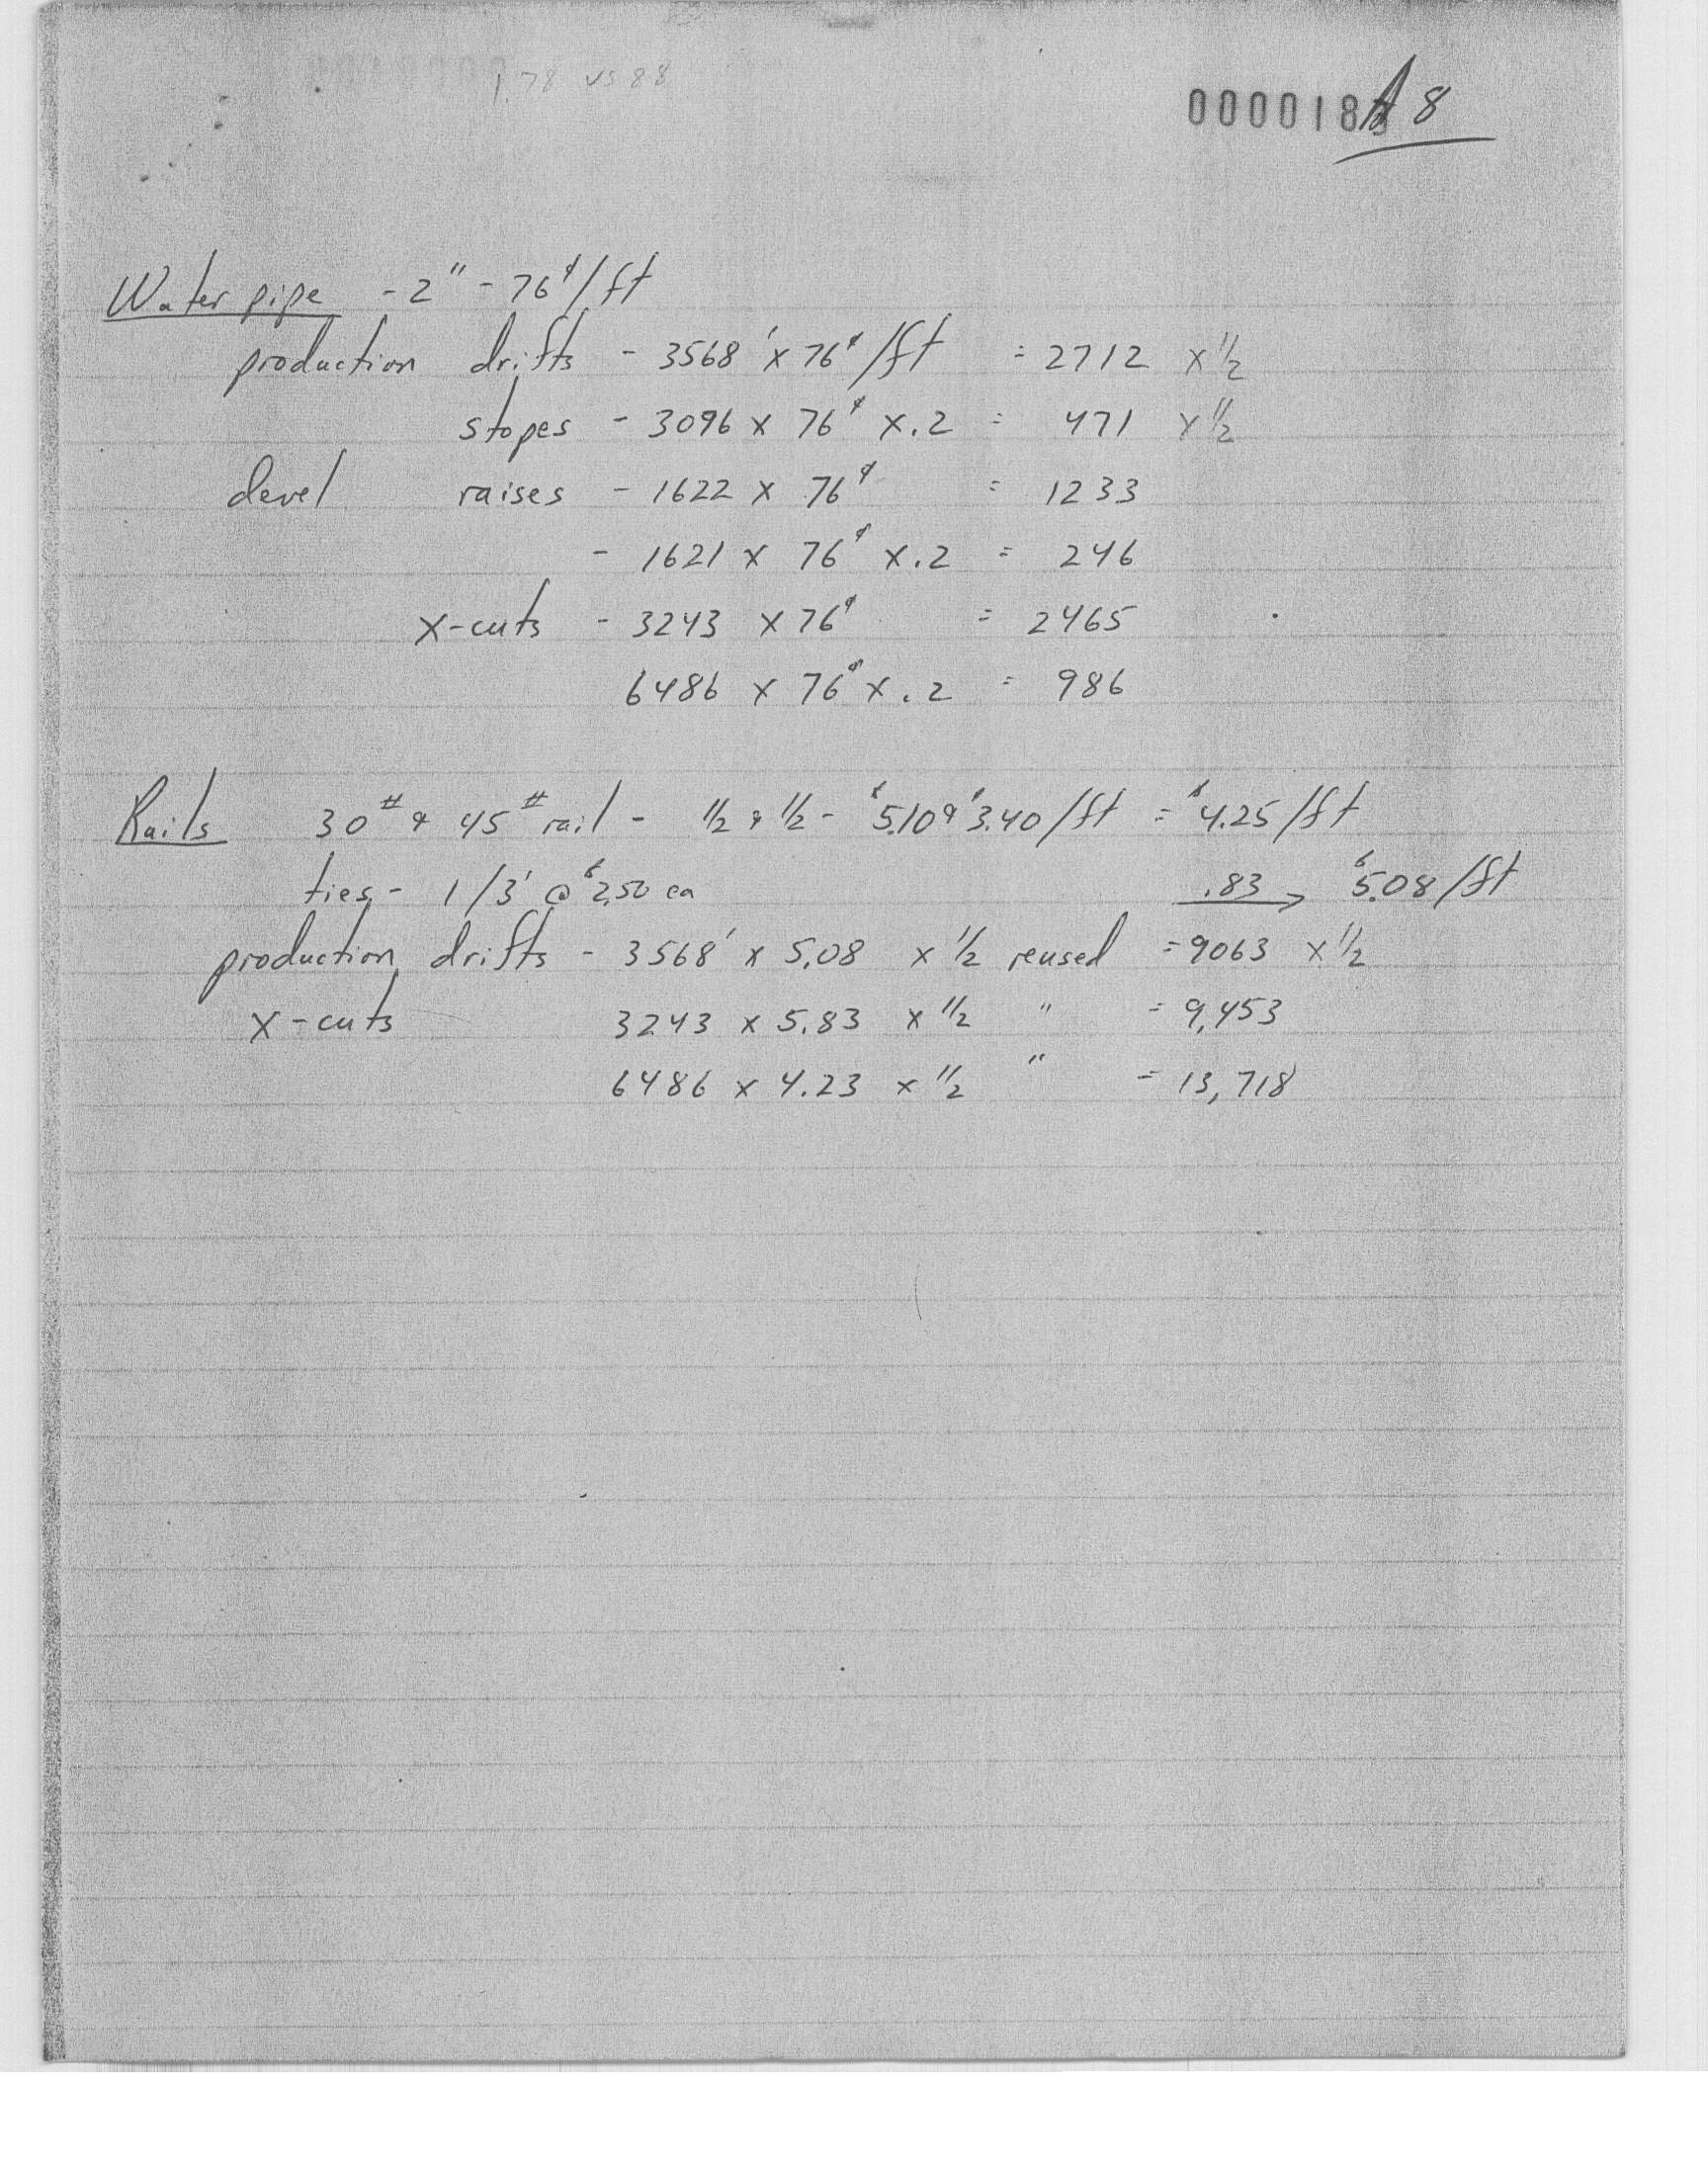 1.78 vs 88
A 8
Water pipe - 2" - 76¢/ft
production drifts - 3568' x 76¢/ft = 2712 x 1/2
stopes - 3096 x 76¢ x .2 = 471 x 1/2
devel raises - 1622 x 76¢ = 1233
- 1621 x 76¢ x .2 = 246
x-cuts - 3243 x 76¢ = 2465
6486 x 76¢ x .2 = 986
Rails 30# & 45# rail - 1/2 & 1/2 - $5.10 & $3.40/ft = $4.25/ft
ties - 1/3' @ $2.50 ea .83 → $5.08/ft
production drifts - 3568' x 5.08 x 1/2 reused = 9063 x 1/2
x-cuts 3243 x 5.83 x 1/2 " = 9,453
6486 x 4.23 x 1/2 " = 13,718